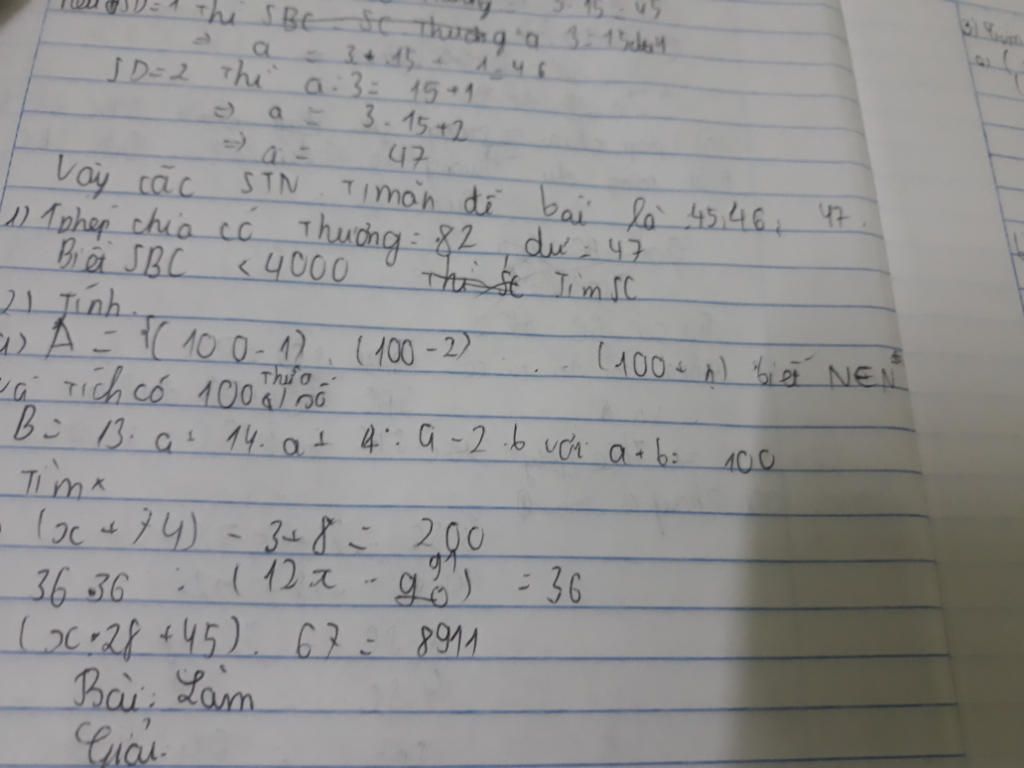 SD=1 Thì SBC SC Thương a 3=15
⇒ a = 3.15 + 1=46
SD=2 Thì a:3= 15+1
⇒ a = 3.15+2
⇒ a = 47
Vậy các STN đề bài là 45,46, 47.
1) 1 phép chia có Thương=82, dư=47
Biết SBC <4000 Tìm SC
2) Tính.
A = (100-1). (100-2) ... (100-n) biết NEN
và Tích có 100 Thừa số
B= 13.a + 14.a + a - 2.b với a+b= 100
Tìm x
(x + 74) - 318 = 200
36 36 : (12x - 91) = 36
(x.28 +45). 67 = 8911
Bài: Làm
Giải.